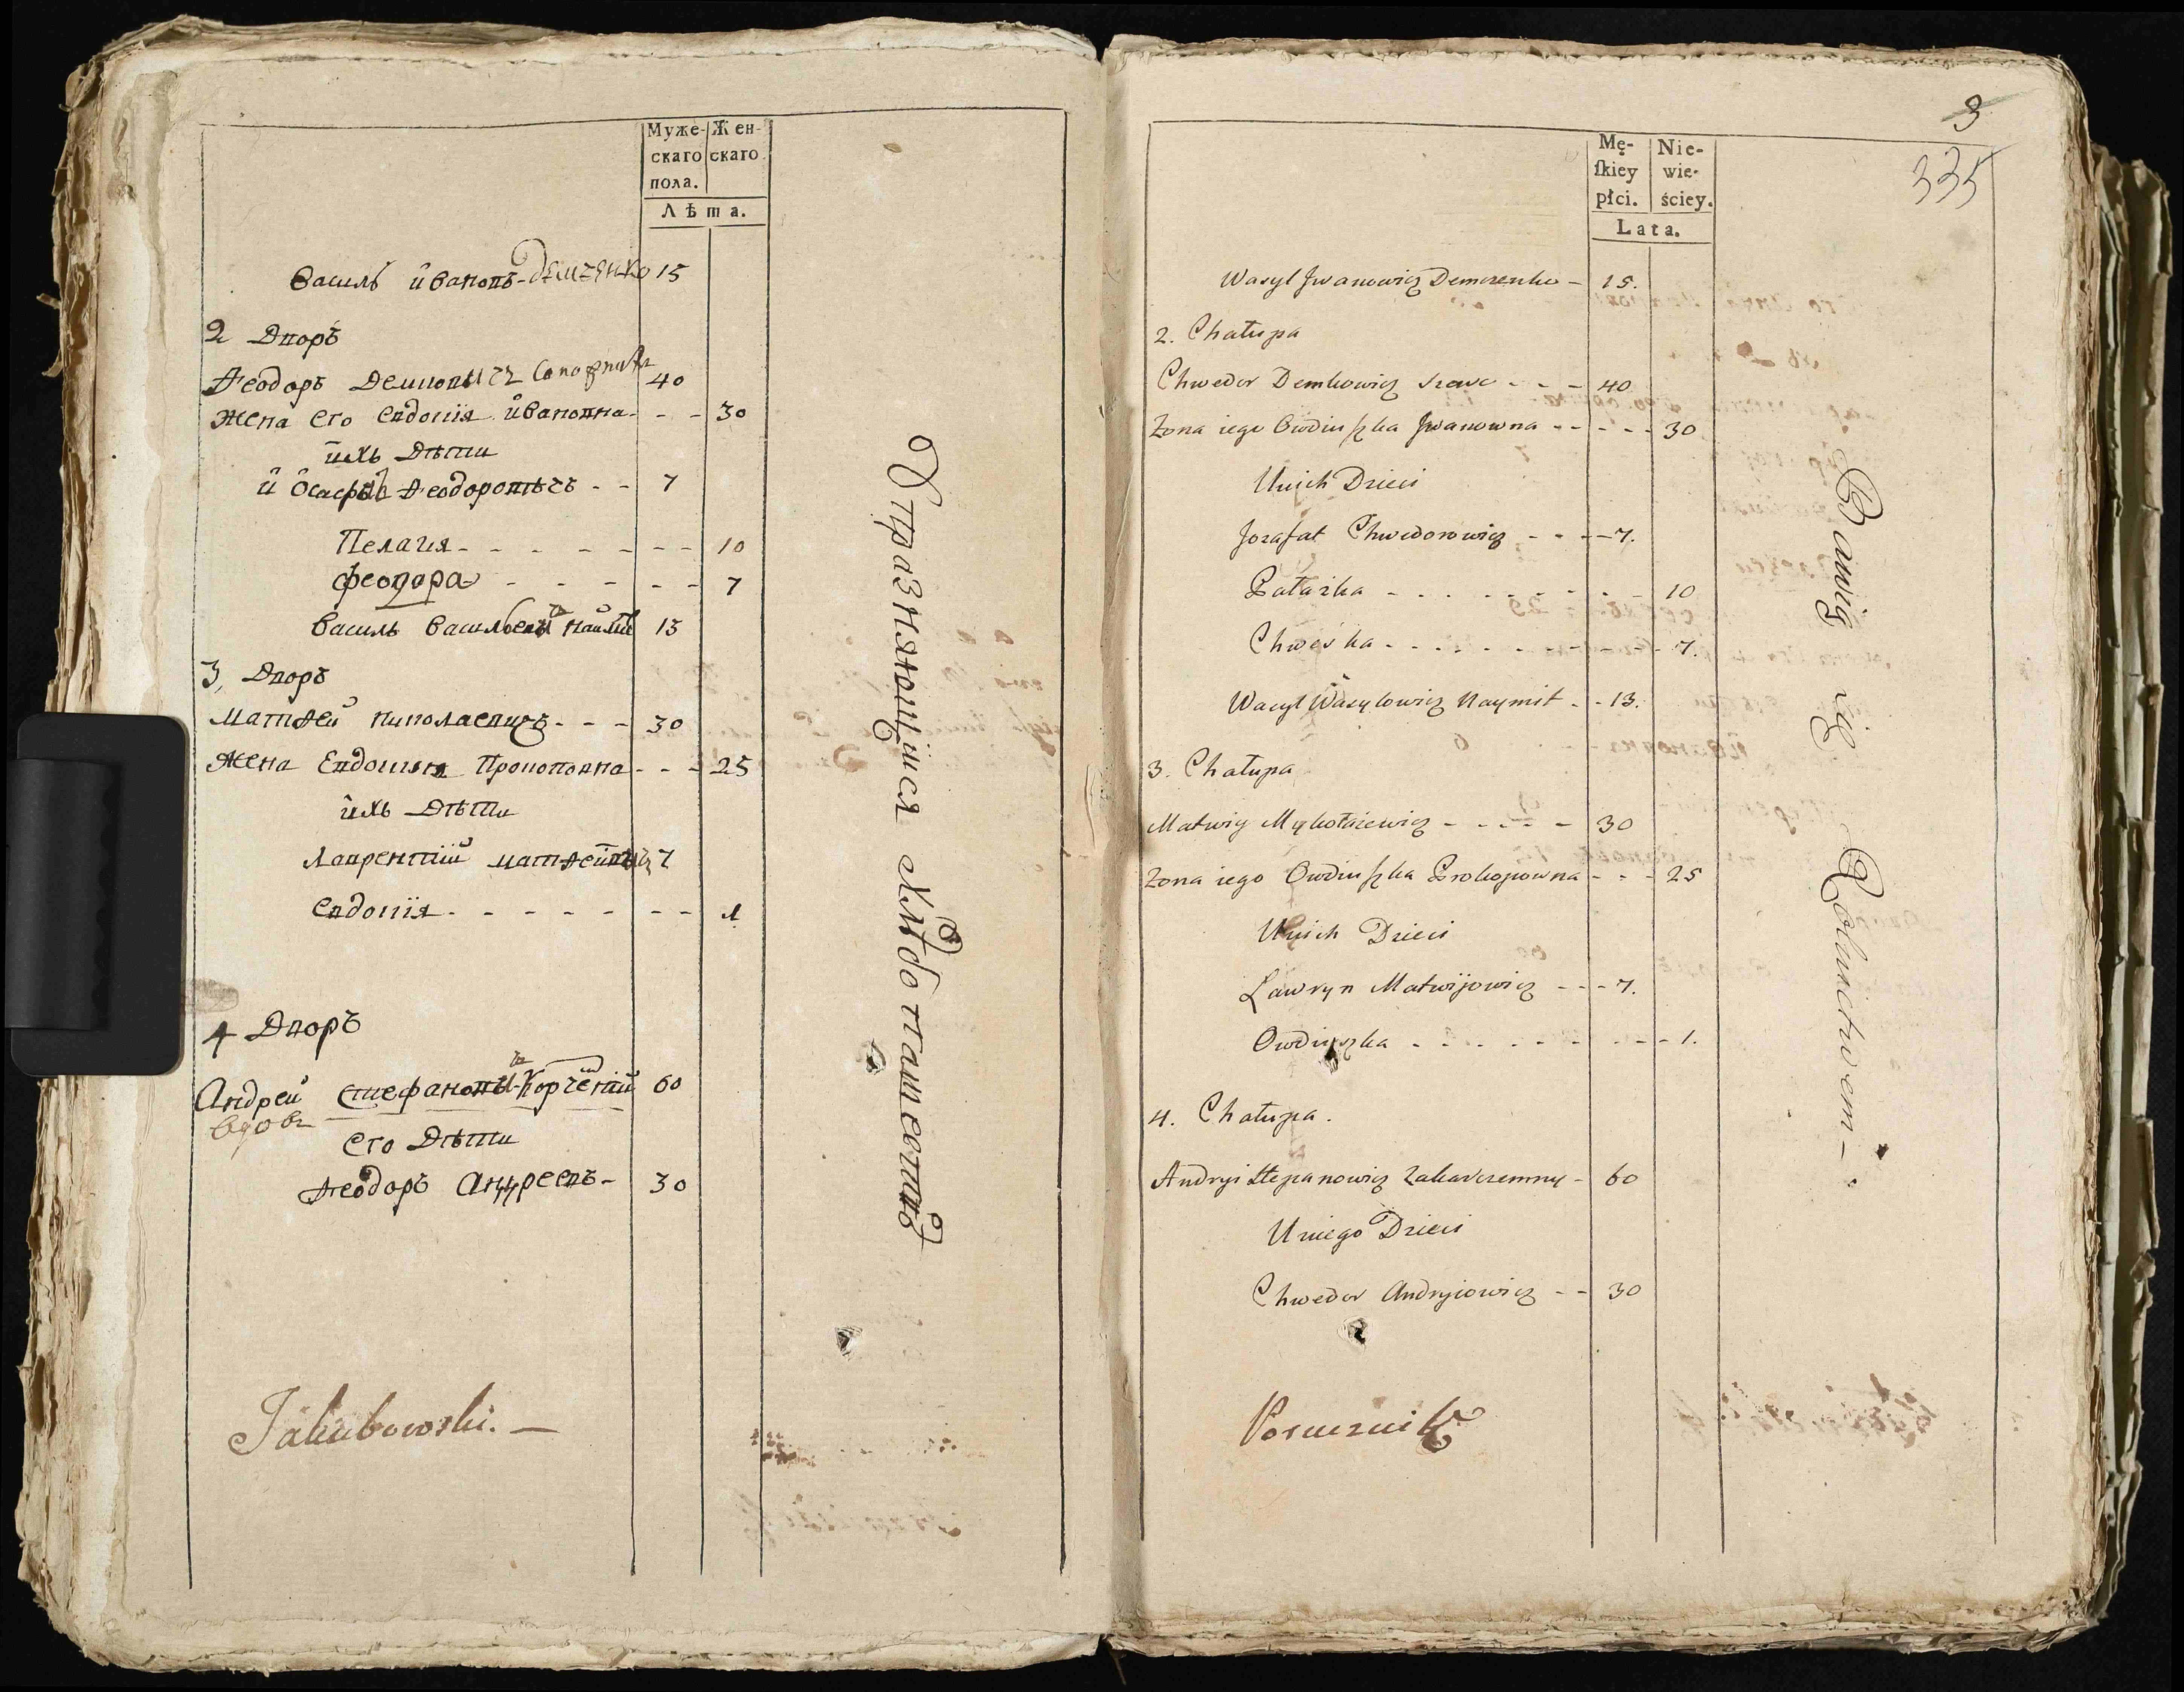 Муже- Жен-
скаго скаго
пола.
Лѣта.
Василь Ивановъ Демченко 15
2 Дворъ
Ѳеодоръ 40
Жена его Евдокія Ивановна - - - 30
ихъ Дѣти
Ѳеодоровичъ - - 7
Пелагия - - - - - - - - 10
феодора - - - - - 7
Василь наймит 13
3, Дворъ
Матѳей Николаевичъ - - - 30
Жена Евдокия Прокоповна - - - 25
ихъ Дѣти
Лаврентий Матѳеевичъ 7
Евдокія - - - - - - - - 1
4 Дворъ
Андрей Стефановичъ 60
вдовъ
его Дѣти
Ѳеодоръ Андреевъ - 30
Jakubowski. —
Упразняющиися хлѣбопашествомъ
3
335
Mę- Nie-
ſkiey wie-
płci. ściey.
Lata.
Wasyl Jwanowicz Demczenko - 15.
2. Chałupa
Chwedor Demkowicz Szewc - - - 40
Żona iego Owdiuszka Jwanowna - - - - - 30
Unich Dzieci
Jozafat Chwedorowicz - - - - 7.
Pałażka - - - - - - - - - 10
Chweśka - - - - - - - - - - 7.
Wasyl Wasylowicz Naymit - - 13.
3. Chałupa
Matwiy Mykołaiewicz - - - - - 30
Żona iego Owdiuszka Prokopowna - - - 25
Unich Dzieci
Ławryn Matwijowicz - - - 7.
Owdiuszka - - - - - - - - - 1.
4. Chałupa.
Andryi Stepanowicz Zakarczemny - 60
Uniego Dzieci
Chwedor Andryiowicz - - 30
Porucznik
Bawią się Rolnictwem -